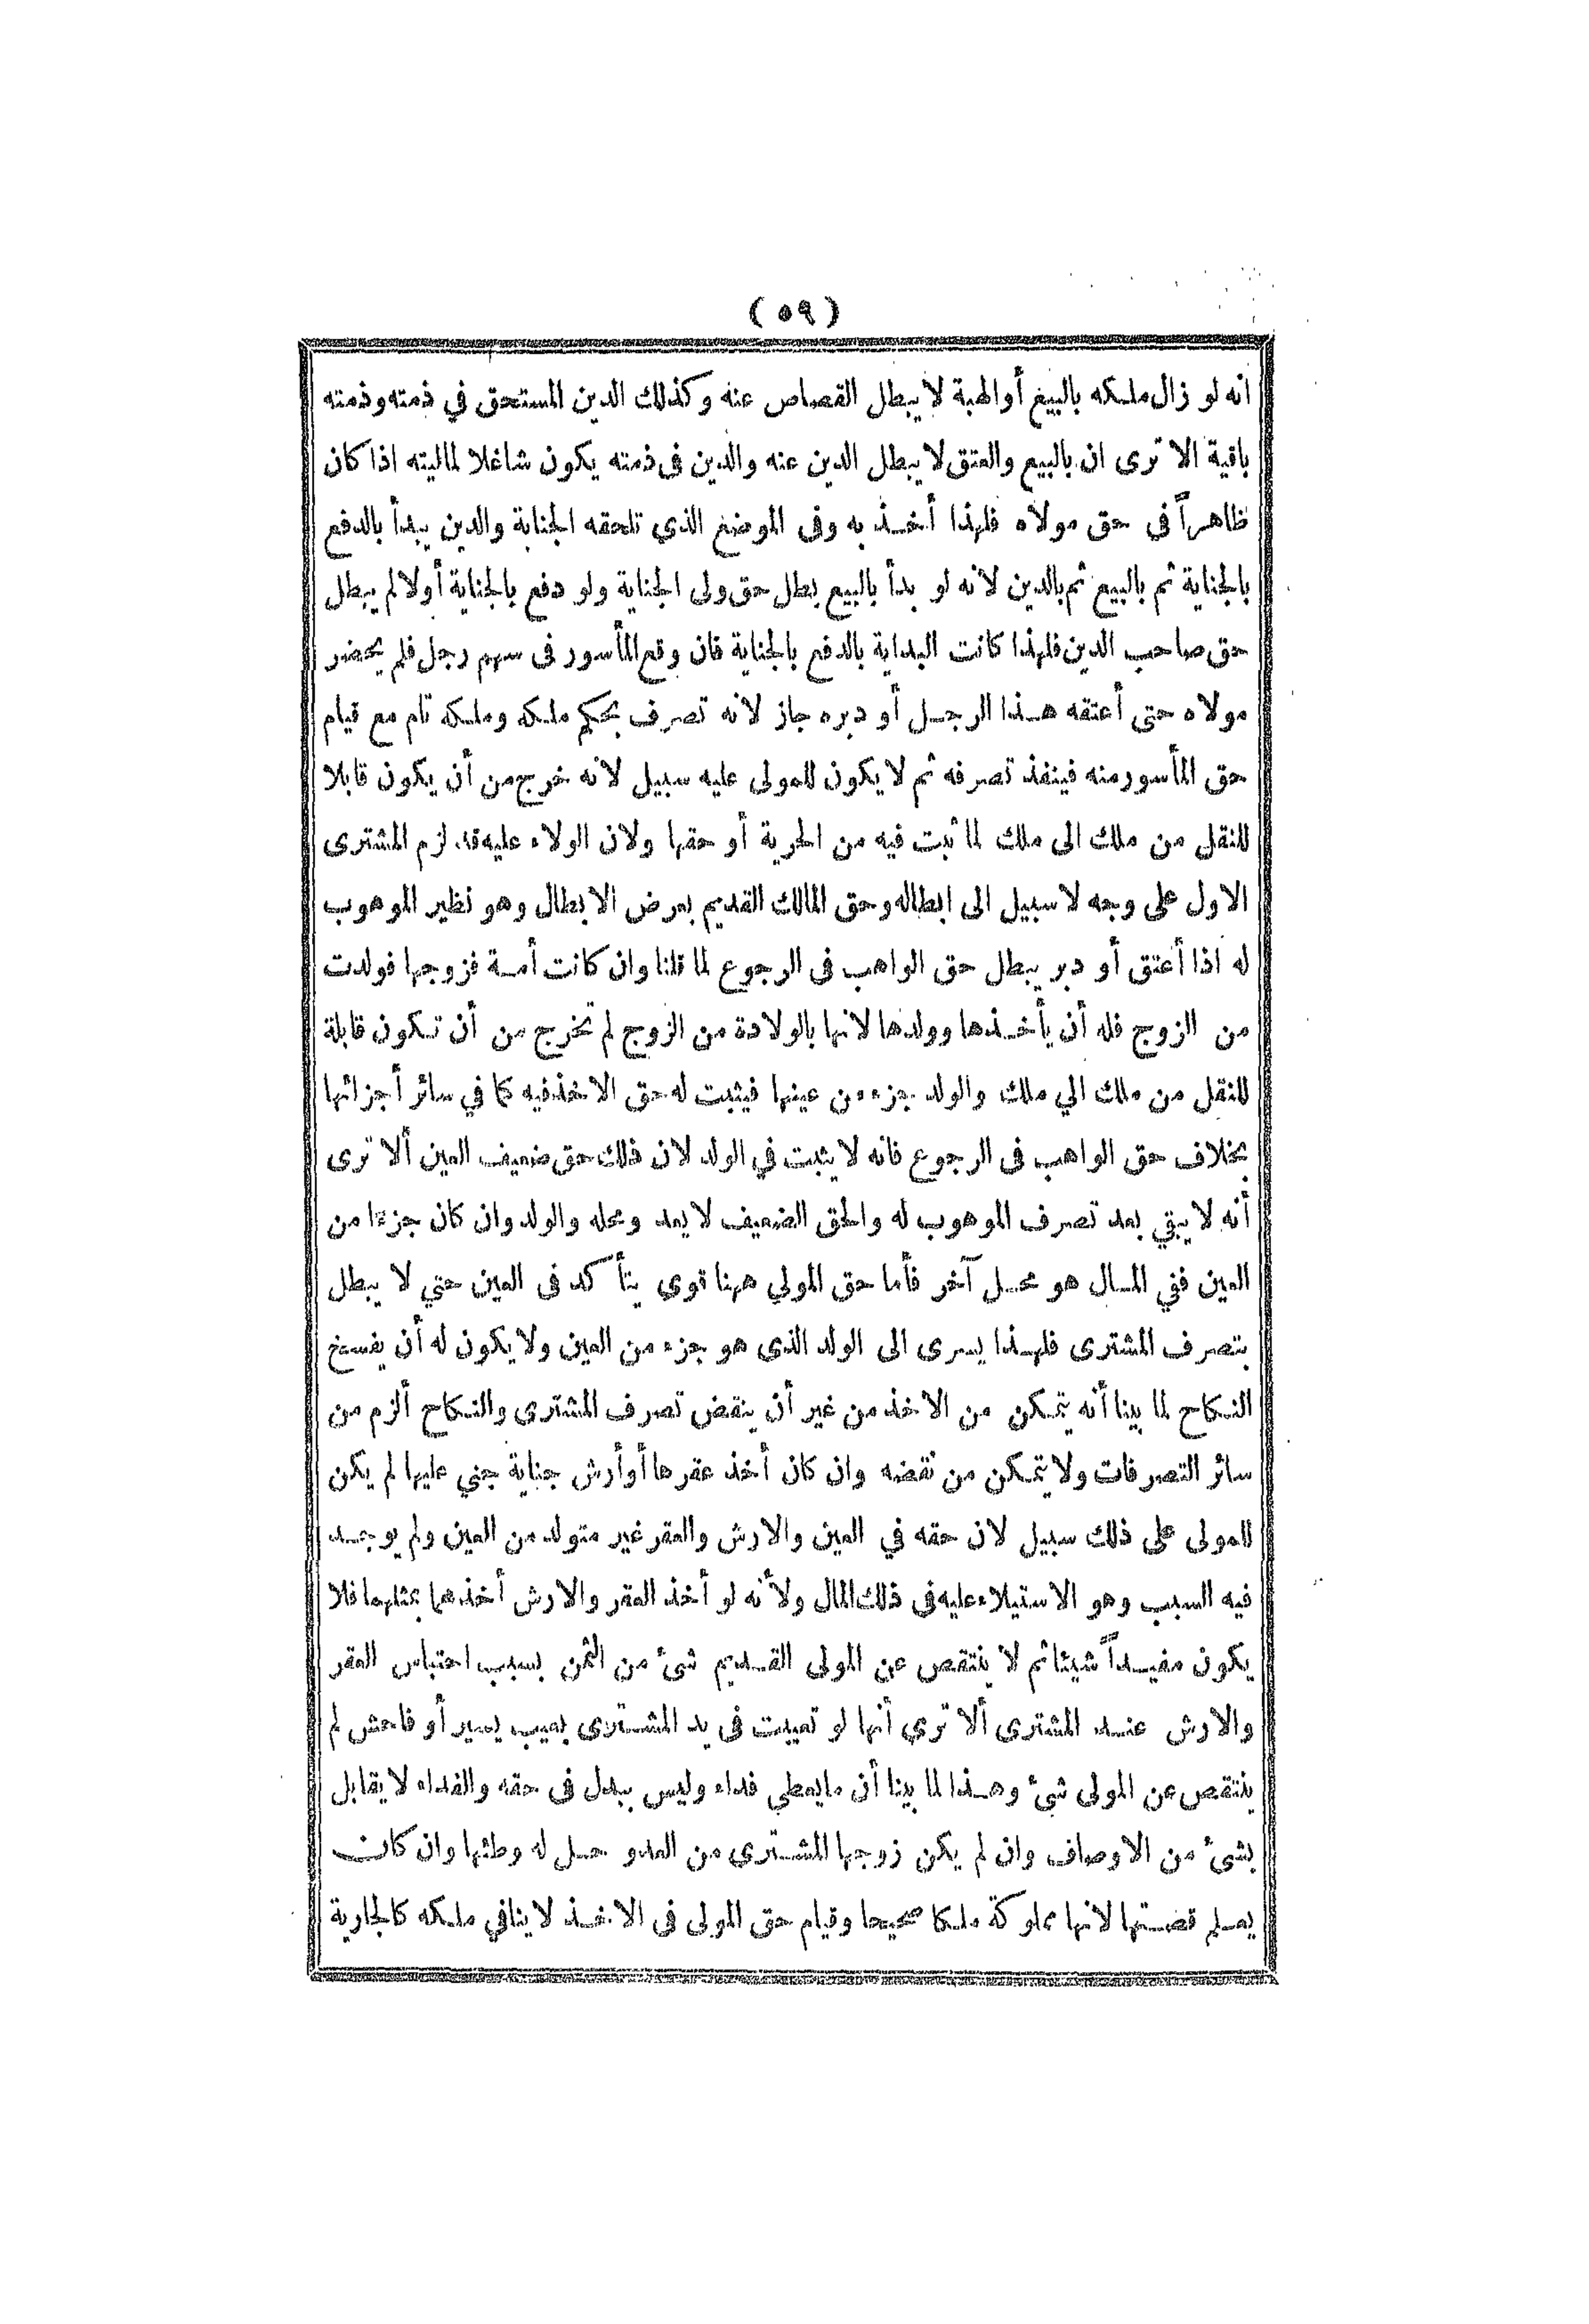 ( ٥٩ )
انه لو زال ملكه بالبيع أو الهبة لا يبطل القصاص عنه وكذلك الدين المستحق في ذمته وذمته
باقية الا ترى ان بالبيع والعتق لا يبطل الدين عنه والدين فى ذمته يكون شاغلا لماليته اذا كان
ظاهراً فى حق مولاه فلهذا أخذ به وفى الموضع الذي تلحقه الجناية والدين يبدأ بالدفع
بالجناية ثم بالبيع ثم بالدين لانه لو بدأ بالبيع بطل حق ولى الجناية ولو دفع بالجناية أولا لم يبطل
حق صاحب الدين فلهذا كانت البداية بالدفع بالجناية فان وقع المأسور فى سهم رجل فلم يحضر
مولاه حتى أعتقه هذا الرجل أو دبره جاز لانه تصرف بحكم ملكه وملكه تام مع قيام
حق المأسور منه فينفذ تصرفه ثم لا يكون للمولى عليه سبيل لانه خرج من أن يكون قابلا
للنقل من ملك الى ملك لما ثبت فيه من الحرية أو حقها ولان الولاء عليه قد لزم المشترى
الاول على وجه لا سبيل الى ابطاله وحق المالك القديم بعرض الابطال وهو نظير الموهوب
له اذا أعتق أو دبر يبطل حق الواهب فى الرجوع لما قلنا وان كانت أمة فزوجها فولدت
من الزوج فله أن يأخذها وولدها لانها بالولادة من الزوج لم تخرج من أن تكون قابلة
للنقل من ملك الي ملك والولد جزء من عينها فيثبت له حق الاخذ فيه كما في سائر أجزائها
بخلاف حق الواهب فى الرجوع فانه لا يثبت في الولد لان ذلك حق ضعيف العين ألا ترى
أنه لا يبقي بعد تصرف الموهوب له والحق الضعيف لا يعد ومحله والولد وان كان جزءا من
العين ففي المال هو محل آخر فأما حق المولي ههنا قوى يتأكد فى العين حتي لا يبطل
بتصرف المشترى فلهذا يسرى الى الولد الذى هو جزء من العين ولا يكون له أن يفسخ
النكاح لما بينا أنه يتمكن من الاخذ من غير أن ينقض تصرف المشترى والنكاح ألزم من
سائر التصرفات ولا يتمكن من نقضه وان كان أخذ عقرها أو أرش جناية جني عليها لم يكن
للمولى على ذلك سبيل لان حقه في العين والارش والعقر غير متولد من العين ولم يوجد
فيه السبب وهو الاستيلاء عليه فى ذلك المال ولأنه لو أخذ العقر والارش أخذهما بمثلهما فلا
يكون مفيداً شيئا ثم لا ينتقص عن المولى القديم شئ من الثمن بسبب احتباس العقر
والارش عند المشترى ألا تري أنها لو تعيبت فى يد المشترى بعيب يسير أو فاحش لم
ينتقص عن المولى شئ وهذا لما بينا أن ما يعطي فداء وليس ببدل فى حقه والفداء لا يقابل
بشئ من الاوصاف وان لم يكن زوجها المشترى من العدو حل له وطئها وان كان
يعلم قصتها لانها مملوكة ملكا صحيحا وقيام حق المولى فى الاخذ لا ينافي ملكه كالجارية